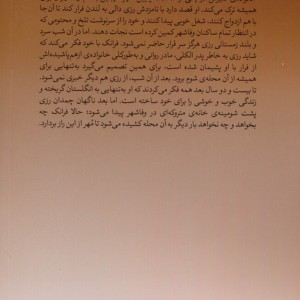 همیشه ترک می‌کنند. او قصد دارد با نامزدش رزی دالی به لندن فرار کند تا آن‌جا
با هم ازدواج کنند، شغل خوبی پیدا کنند و خود را از سرنوشت تلخ و محتومی که
در انتظار تمام ساکنان وفاشهر کمین کرده است نجات دهند. اما در آن شب سرد
و بلند زمستانی رزی هرگز سر قرار حاضر نمی‌شود. فرانک با خود فکر می‌کند که
شاید رزی به خاطر پدر الکلی، مادر روانی و به‌طورکلی خانواده‌ی ازهم‌پاشیده‌اش
از فرار با او پشیمان شده است، برای همین تصمیم می‌گیرد به‌تنهایی برای
همیشه از آن محله‌ی شوم برود. بعد از آن شب، از رزی هم دیگر خبری نمی‌شود.
تا بیست و دو سال بعد همه فکر می‌کردند که او به‌تنهایی به انگلستان گریخته و
زندگی خوب و خوشی را برای خود ساخته است. اما بعد ناگهان چمدان رزی
پشت شومینه‌ی خانه‌ی متروکه‌ای در وفاشهر پیدا می‌شود؛ حالا فرانک چه
بخواهد و چه نخواهد بار دیگر به آن محله کشیده می‌شود تا مُهر از این راز بردارد.